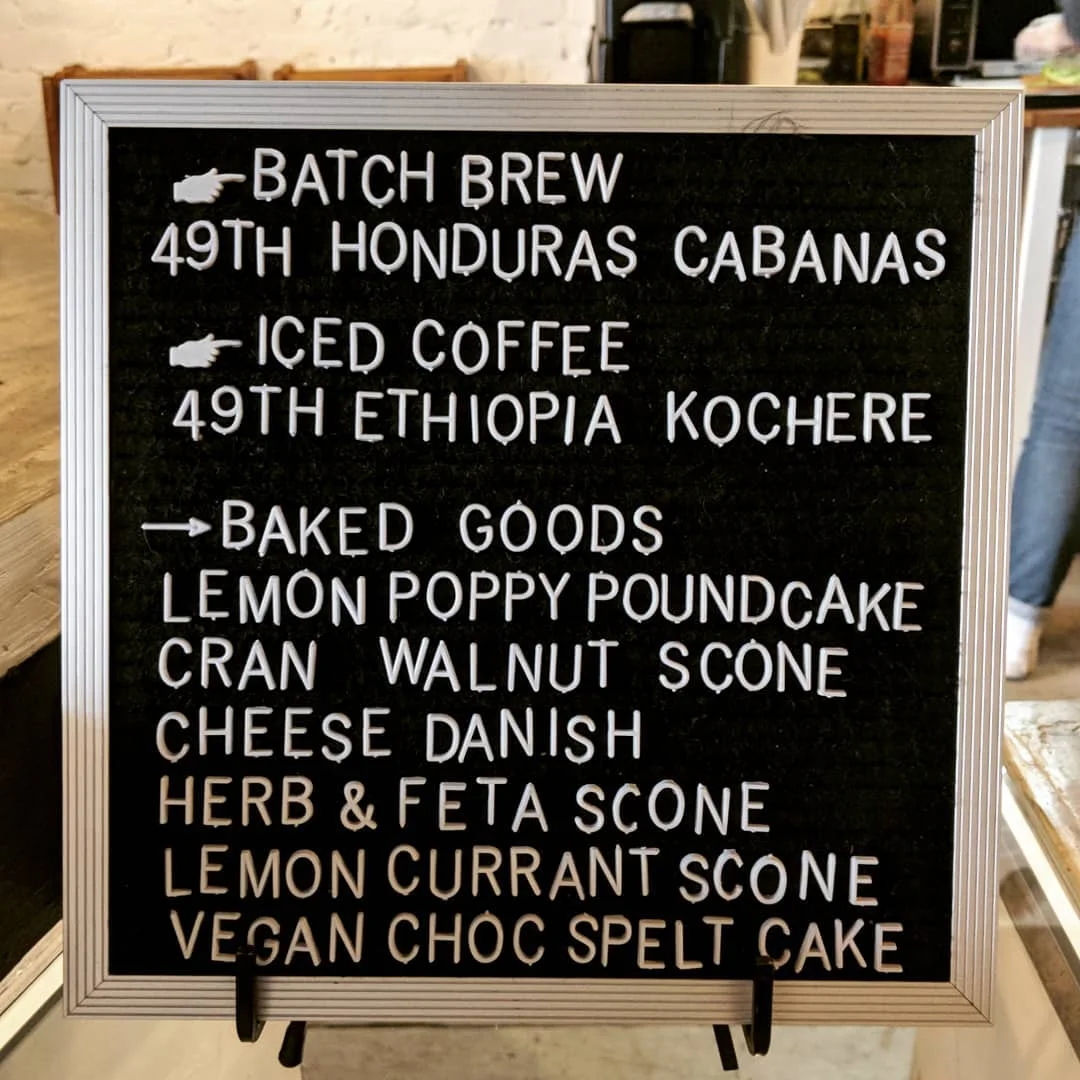 BATCH BREW
49TH HONDURAS CABANAS
ICED COFFEE
49TH ETHIOPIA KOCHERE
BAKED GOODS
LEMON POPPY POUNDCAKE
CRAN WALNUT SCONE
CHEESE DANISH
HERB & FETA SCONE
LEMON CURRANT SCONE
VEGAN CHOC SPELT CAKE